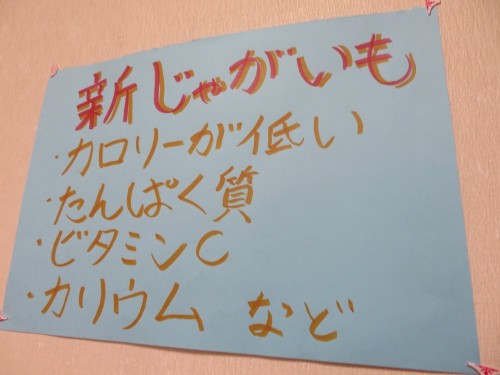 新じゃがいも
・カロリーが低い
・たんぱく質
・ビタミンC
・カリウム など